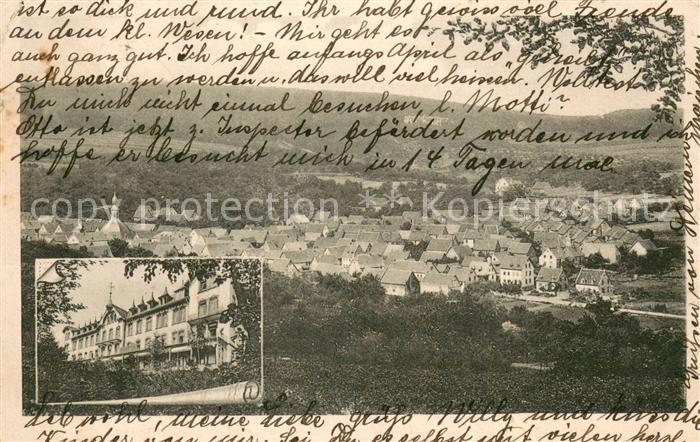 ist so dick und rund. Ihr habt gewiss viel Freude
an dem kl. Wesen! – Mir geht es
auch ganz gut. Ich hoffe anfangs April als "geheilt"
entlassen zu werden u. das will viel heissen. Wolltest
Du mich nicht einmal besuchen, l. Motti?
Otto ist jetzt z. Inspector befördert worden und ich
hoffe er besucht mich in 14 Tagen mal
copyright by oldthing.de
copyright by oldthing.de
Leb wohl, meine Liebe grüss Willy und küss die
Kinder von mir. Sei Du es selbst mit vielen herzl.